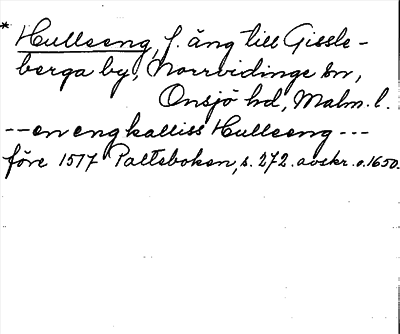 * Hullseng, f. äng till Gissle-
berga by, Norrvidinge sn,
Onsjö hd, Malm. l.
-- en eng kalliss Hullseng ---
före 1517 Palteboken, s. 272. avskr. o. 1650.